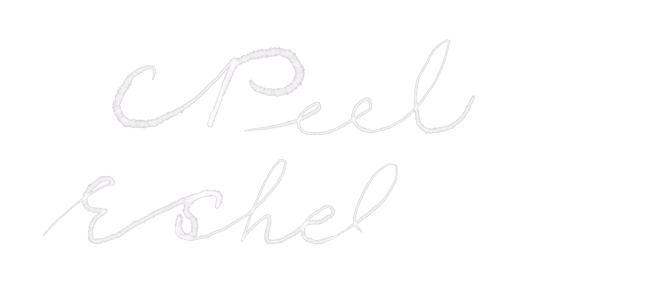 C Peel
E Shel